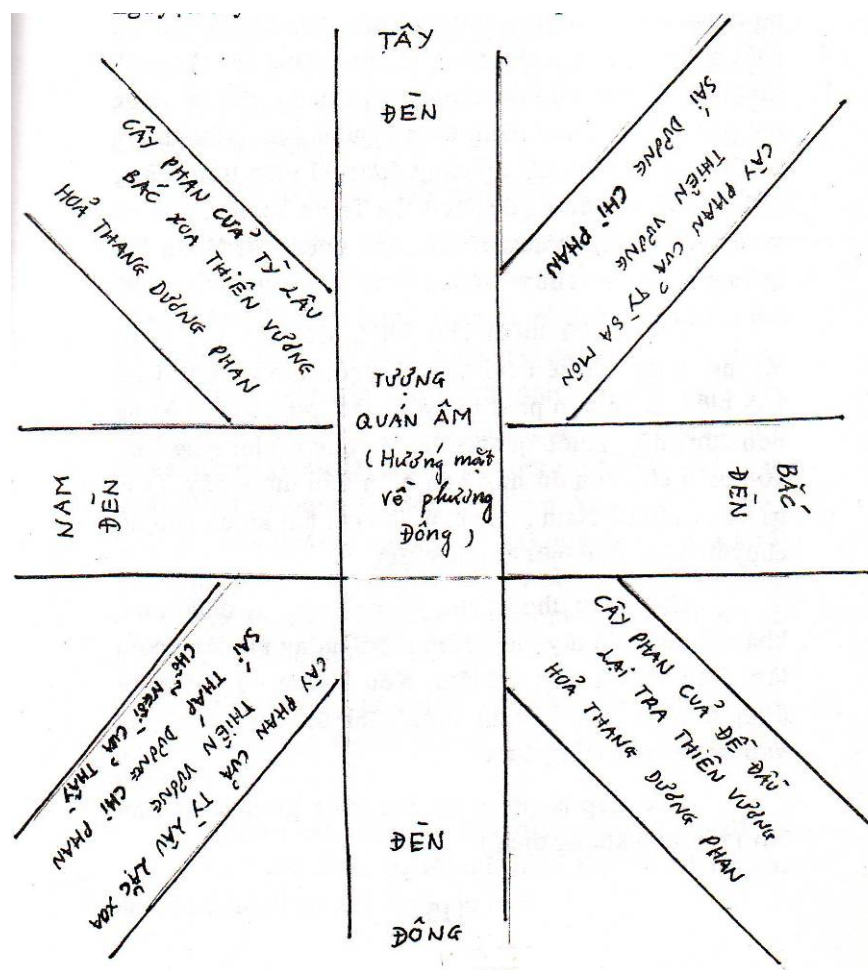 TÂY
ĐÈN
CÂY PHAN CUẢ TỲ LÂU
BÁC XOA THIÊN VƯƠNG
HOẢ THANG DƯƠNG PHAN
CÂY PHAN CUẢ TỲ SA MÔN
THIÊN VƯƠNG
SÁI DƯƠNG CHI PHAN.
TƯỢNG
QUÁN ÂM
(Hướng mặt
về phương
Đông)
NAM
ĐÈN
BẮC
ĐÈN
CÂY PHAN CUẢ TỲ LÂU LẶC XOA
THIÊN VƯƠNG
SÁI THÁP DƯƠNG CHI PHAN
CHỖ NGỒI CUẢ THẦY
CÂY PHAN CUẢ ĐỀ ĐẦU
LAI TRA THIÊN VƯƠNG
HOẢ THANG DƯƠNG PHAN
ĐÈN
ĐÔNG